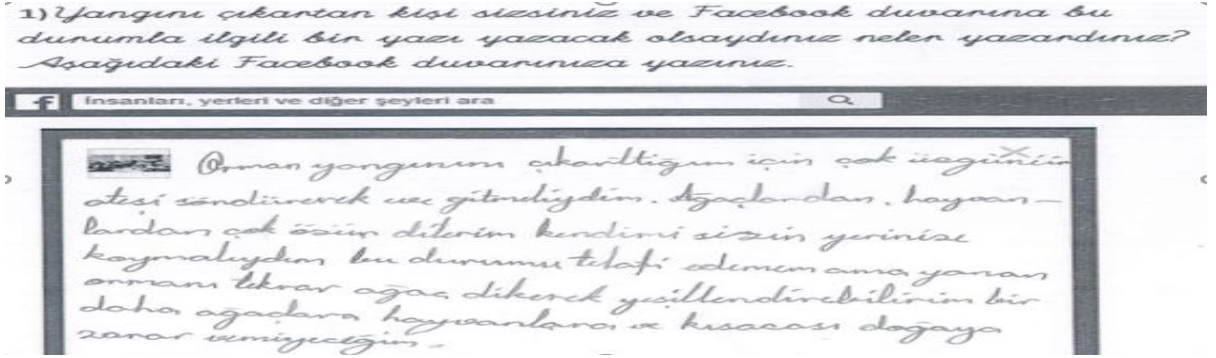 1) Yangını çıkartan kişi sizsiniz ve Facebook duvarına bu
durumla ilgili bir yazı yazacak olsaydınız neler yazardınız?
Aşağıdaki Facebook duvarınıza yazınız.
f İnsanları, yerleri ve diğer şeyleri ara
Orman yangınını çıkarttığım için çok üzgünüm
ateşi söndürerek gitmeliydim. Ağaçlardan, hayvan-
lardan çok özür dilerim kendimi sizin yerinize
koymalıydım bu durumu telafi edemem ama yanan
ormanı tekrar ağaç dikerek yeşillendirebilirim bir
daha ağaçlara hayvanlara ve kısacası doğaya
zarar vermiyeceğim.